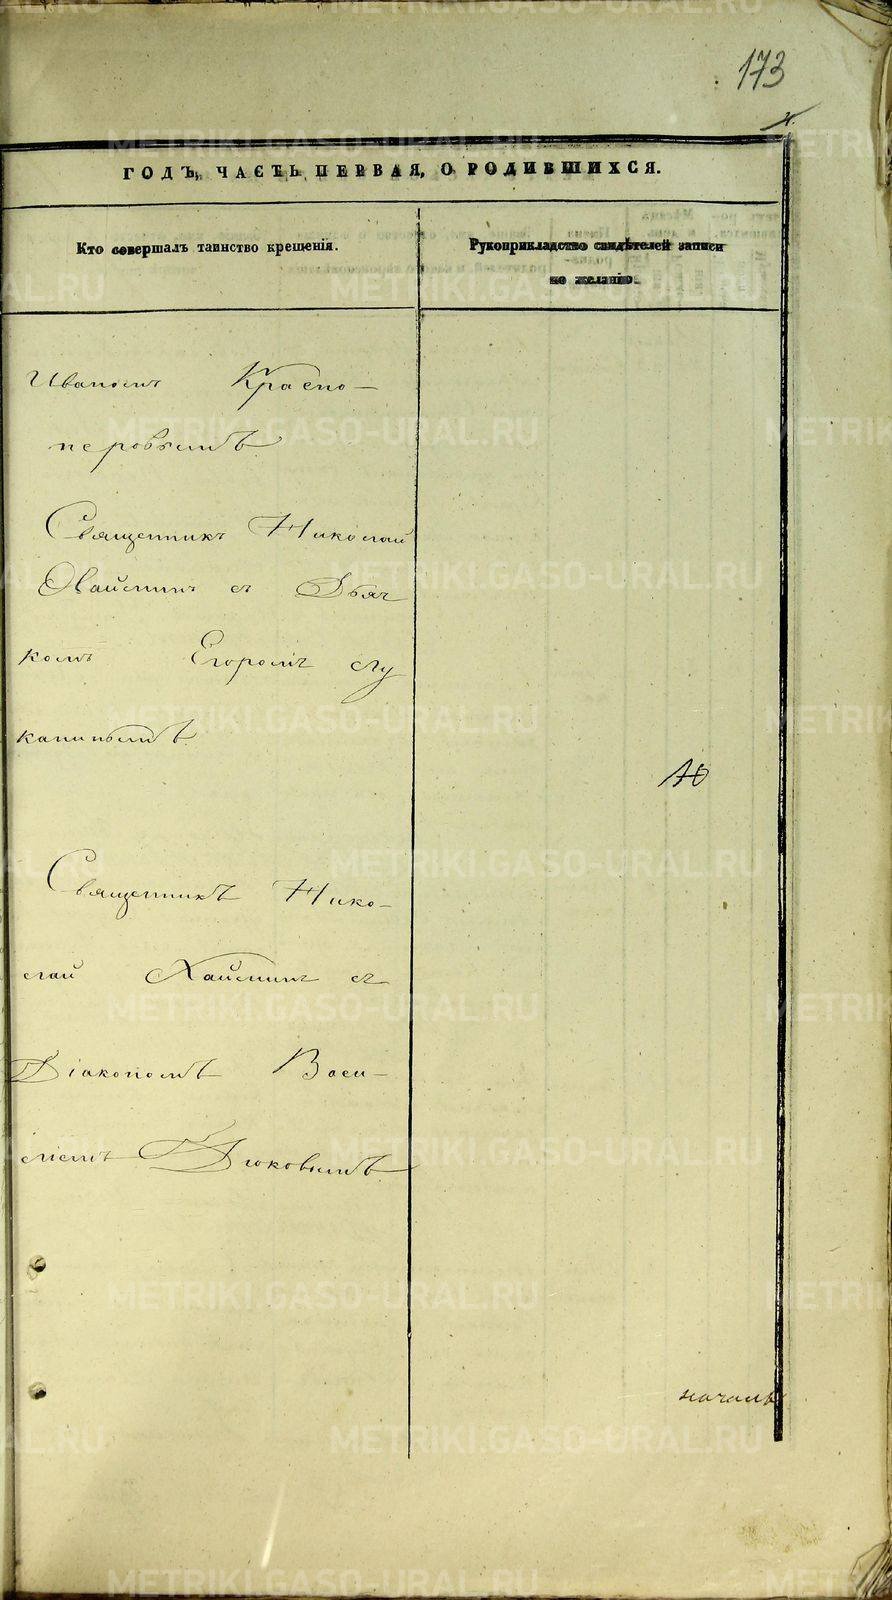 173
ГОДЪ, ЧАСТЬ ПЕРВАЯ, О РОДИВШИХСЯ.
Кто совершалъ таинство крещенія.
Рукоприкладство свидѣтелей записи
по желанію.
Иваномъ Красно-
перовымъ
Священникъ Николай
Хаймин съ Дьяч
комъ Егоромъ Лу
канинымъ
Священникъ Нико-
лай Хайминъ съ
Діакономъ Васи-
ліемъ Дюковымъ
METRIKI.GASO-URAL.RU